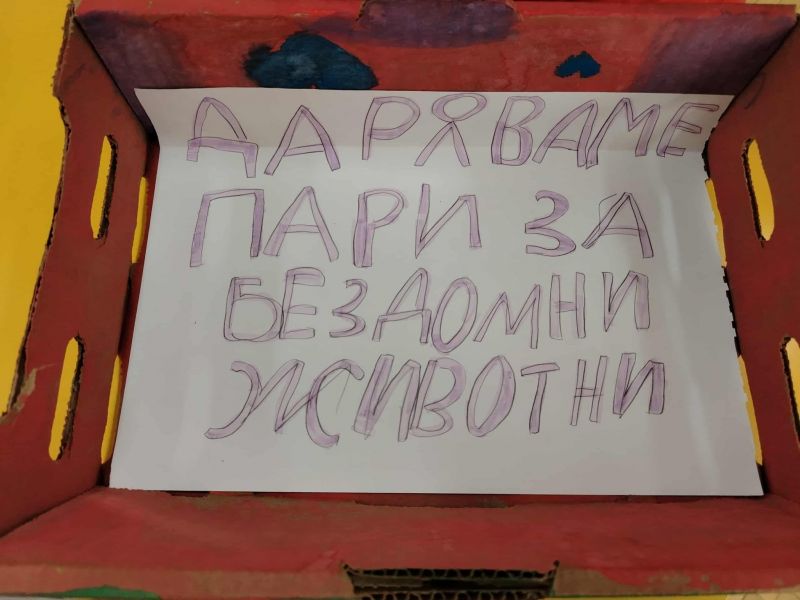 ДАРЯВАМЕ
ПАРИ ЗА
БЕЗДОМНИ
ЖИВОТНИ